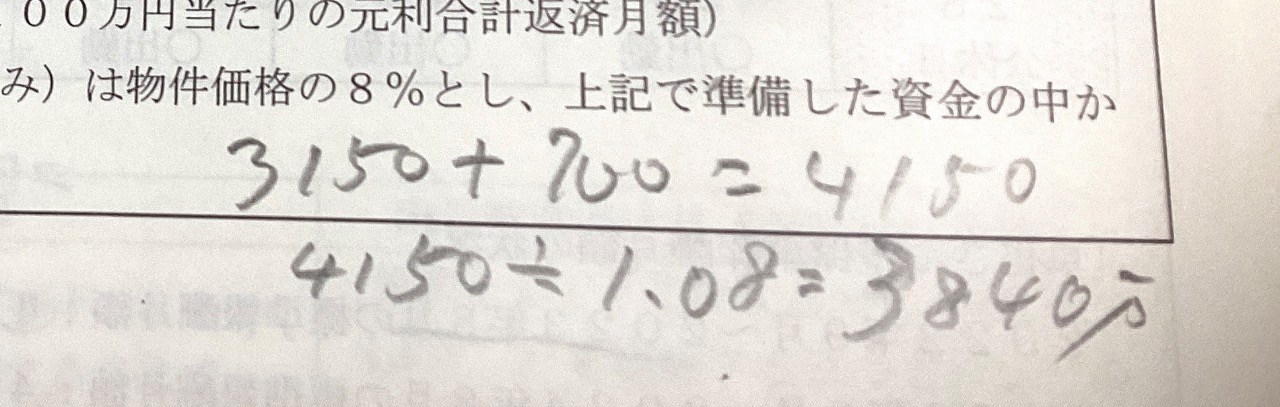 ００万円当たりの元利合計返済月額）
み）は物件価格の８％とし、上記で準備した資金の中か
3150+700=4150
4150÷1.08=3840万